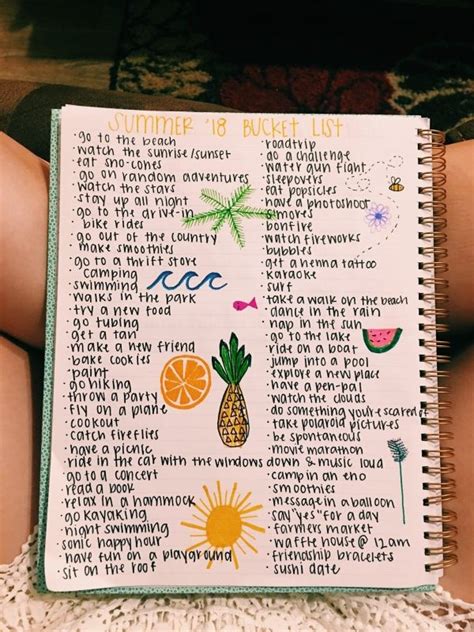 SUMMER '18 BUCKET LIST
· go to the beach
· watch the sunrise/sunset
· eat sno-cones
· go on random adventures
· watch the stars
· stay up all night
· go to the drive-in
· bike rides
· go out of the country
· make smoothies
· go to a thrift store
· camping
· swimming
· walks in the park
· try a new food
· go tubing
· get a tan
· make a new friend
· bake cookies
· paint
· go hiking
· throw a party
· fly on a plane
· cookout
· catch fireflies
· have a picnic
· ride in the car with the windows down & music loud
· go to a concert
· read a book
· relax in a hammock
· go kayaking
· night swimming
· sonic happy hour
· have fun on a playground
· sit on the roof
· roadtrip
· do a challenge
· water gun fight
· sleepovers
· eat popsicles
· have a photoshoot
· s'mores
· bonfire
· watch fireworks
· bubbles
· get a henna tattoo
· karaoke
· surf
· take a walk on the beach
· dance in the rain
· nap in the sun
· go to the lake
· ride on a boat
· jump into a pool
· explore a new place
· have a pen-pal
· watch the clouds
· do something you're scared of
· take polaroid pictures
· be spontaneous
· movie marathon
· camp in an eno
· smoothies
· message in a balloon
· say "yes" for a day
· farmers market
· waffle house @ 12am
· friendship bracelets
· sushi date